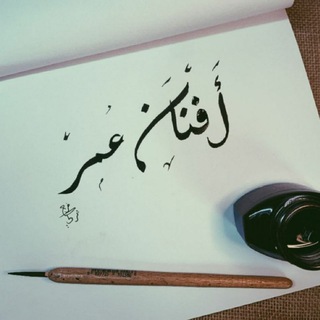 أَفْنَان عُمَر